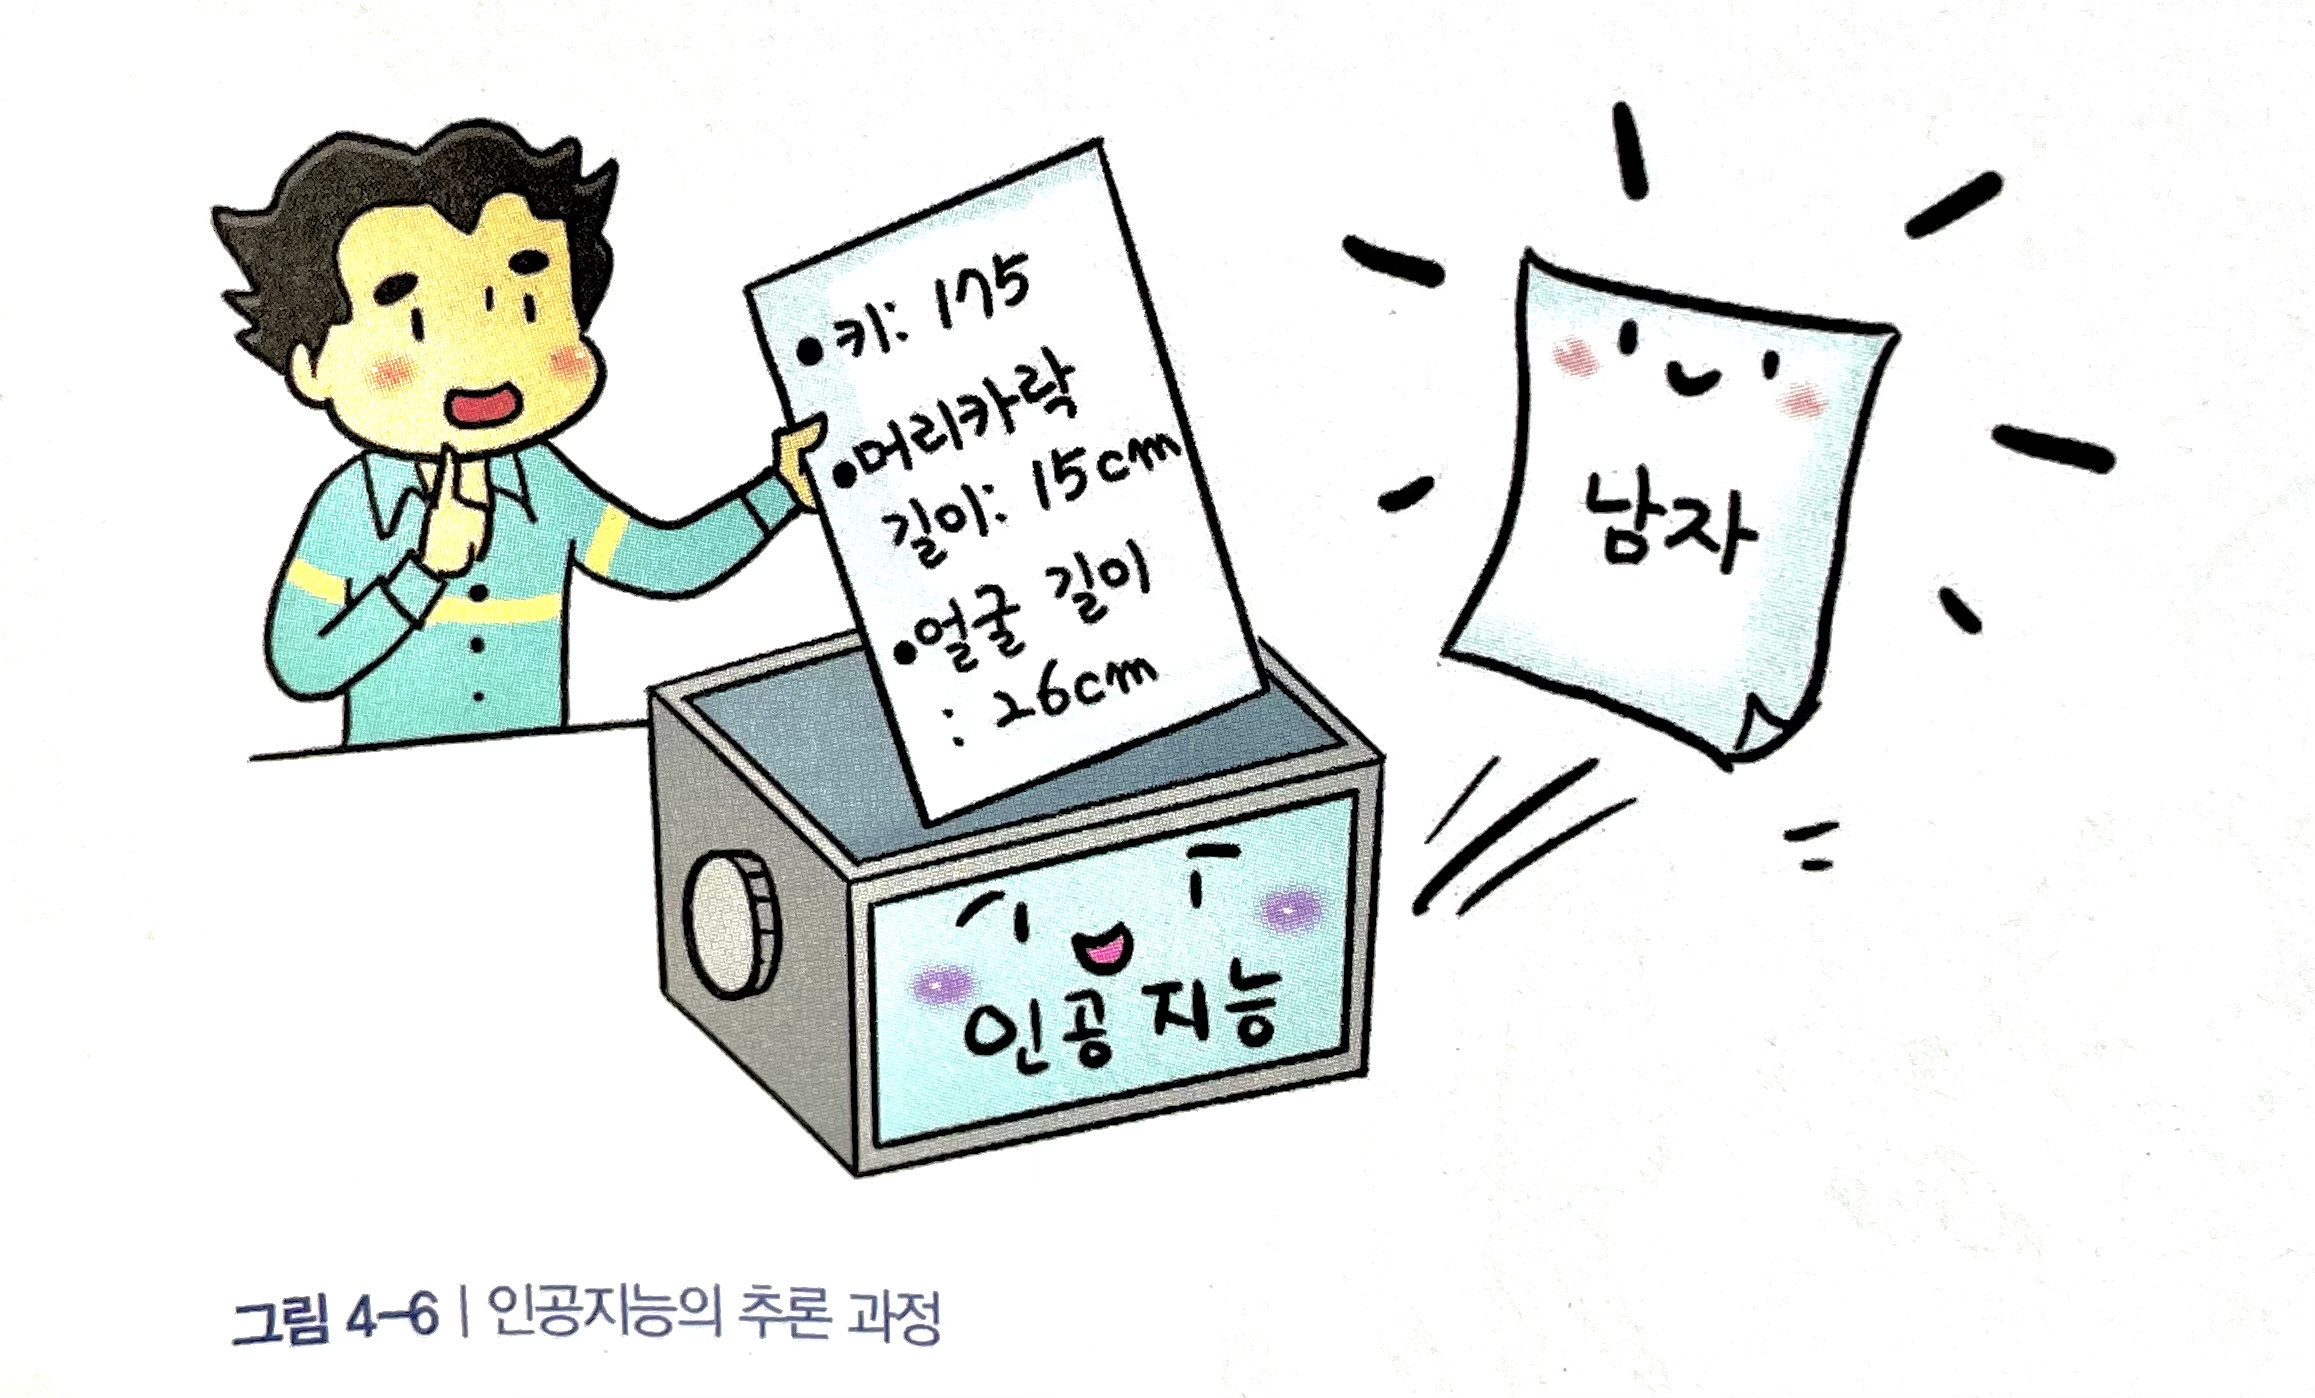 ●키: 175
●머리카락
길이: 15cm
●얼굴 길이
: 26cm
남자
인공지능
그림 4-6 | 인공지능의 추론 과정